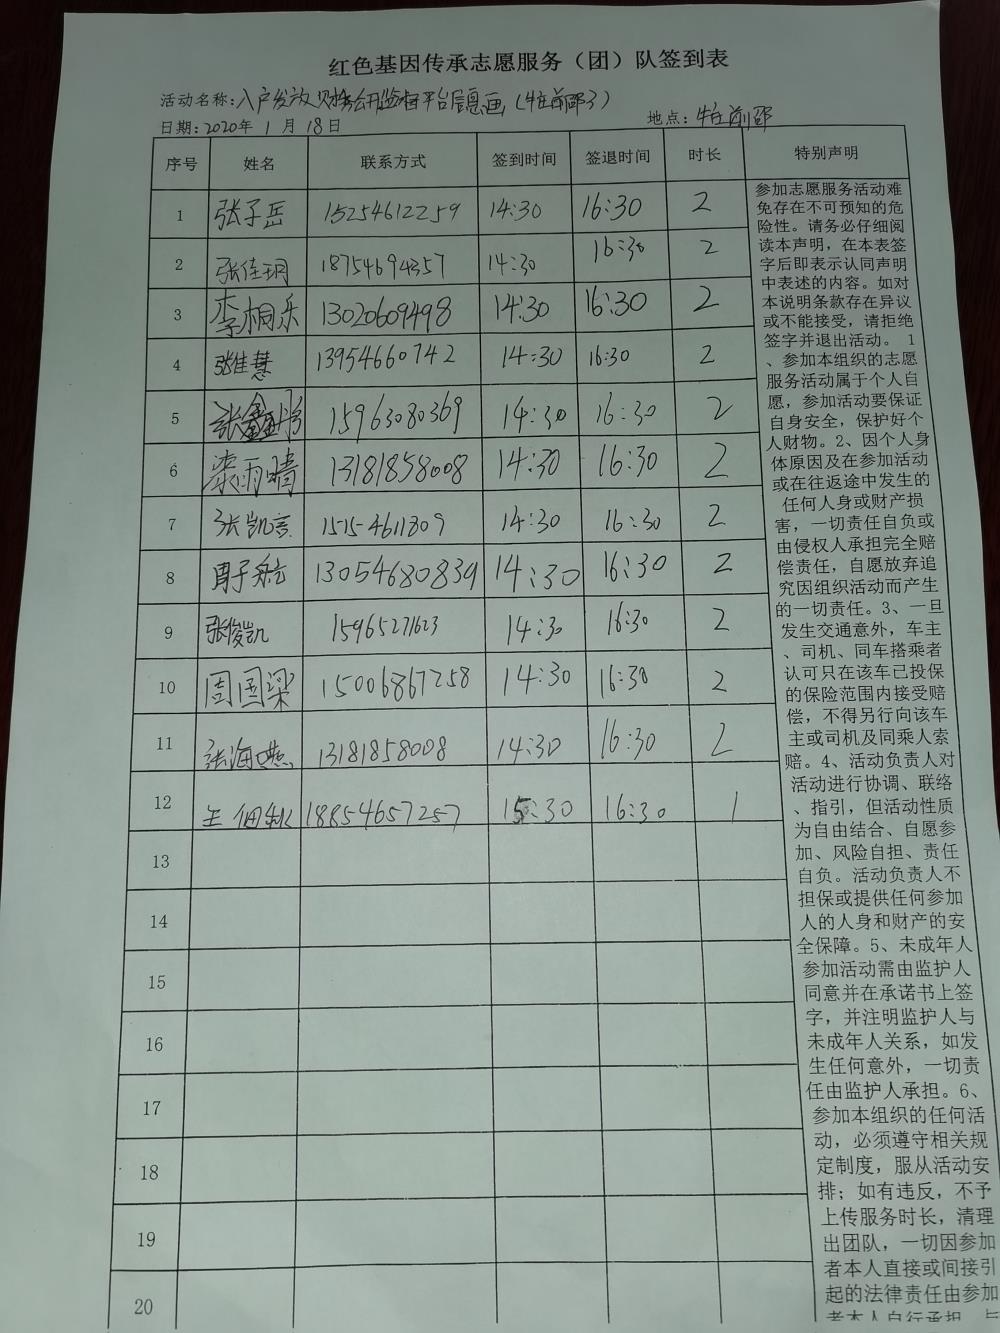 红色基因传承志愿服务（团）队签到表
活动名称：入户发放财务公开监督平台信息画（牛庄前邵）
日期：2020年 1 月 18日 地点：牛庄前邵
序号 姓名 联系方式 签到时间 签退时间 时长 特别声明
1 张子岳 15254612259 14:30 16:30 2
2 张佳玥 18754694357 14:30 16:30 2
3 李桐乐 13020609498 14:30 16:30 2
4 张佳慧 13954660742 14:30 16:30 2
5 张鑫 15963080369 14:30 16:30 2
6 雨晴 13181858008 14:30 16:30 2
7 张凯 15154611809 14:30 16:30 2
8 子航 13054680839 14:30 16:30 2
9 张俊凯 15965271623 14:30 16:30 2
10 周国梁 15006867258 14:30 16:30 2
11 张海燕 13181858008 14:30 16:30 2
12 王 18854657257 15:30 16:30 1
13
14
15
16
17
18
19
20
参加志愿服务活动难
免存在不可预知的危
险性。请务必仔细阅
读本声明，在本表签
字后即表示认同声明
中表述的内容。如对
本说明条款存在异议
或不能接受，请拒绝
签字并退出活动。 1
、参加本组织的志愿
服务活动属于个人自
愿，参加活动要保证
自身安全，保护好个
人财物。2、因个人身
体原因及在参加活动
或在往返途中发生的
任何人身或财产损
害，一切责任自负或
由侵权人承担完全赔
偿责任，自愿放弃追
究因组织活动而产生
的一切责任。3、一旦
发生交通意外，车主
、司机、同车搭乘者
认可只在该车已投保
的保险范围内接受赔
偿，不得另行向该车
主或司机及同乘人索
赔。4、活动负责人对
活动进行协调、联络
、指引，但活动性质
为自由结合、自愿参
加、风险自担、责任
自负。活动负责人不
担保或提供任何参加
人的人身和财产的安
全保障。5、未成年人
参加活动需由监护人
同意并在承诺书上签
字，并注明监护人与
未成年人关系，如发
生任何意外，一切责
任由监护人承担。6、
参加本组织的任何活
动，必须遵守相关规
定制度，服从活动安
排；如有违反，不予
上传服务时长，清理
出团队，一切因参加
者本人直接或间接引
起的法律责任由参加
者本人自行承担，与